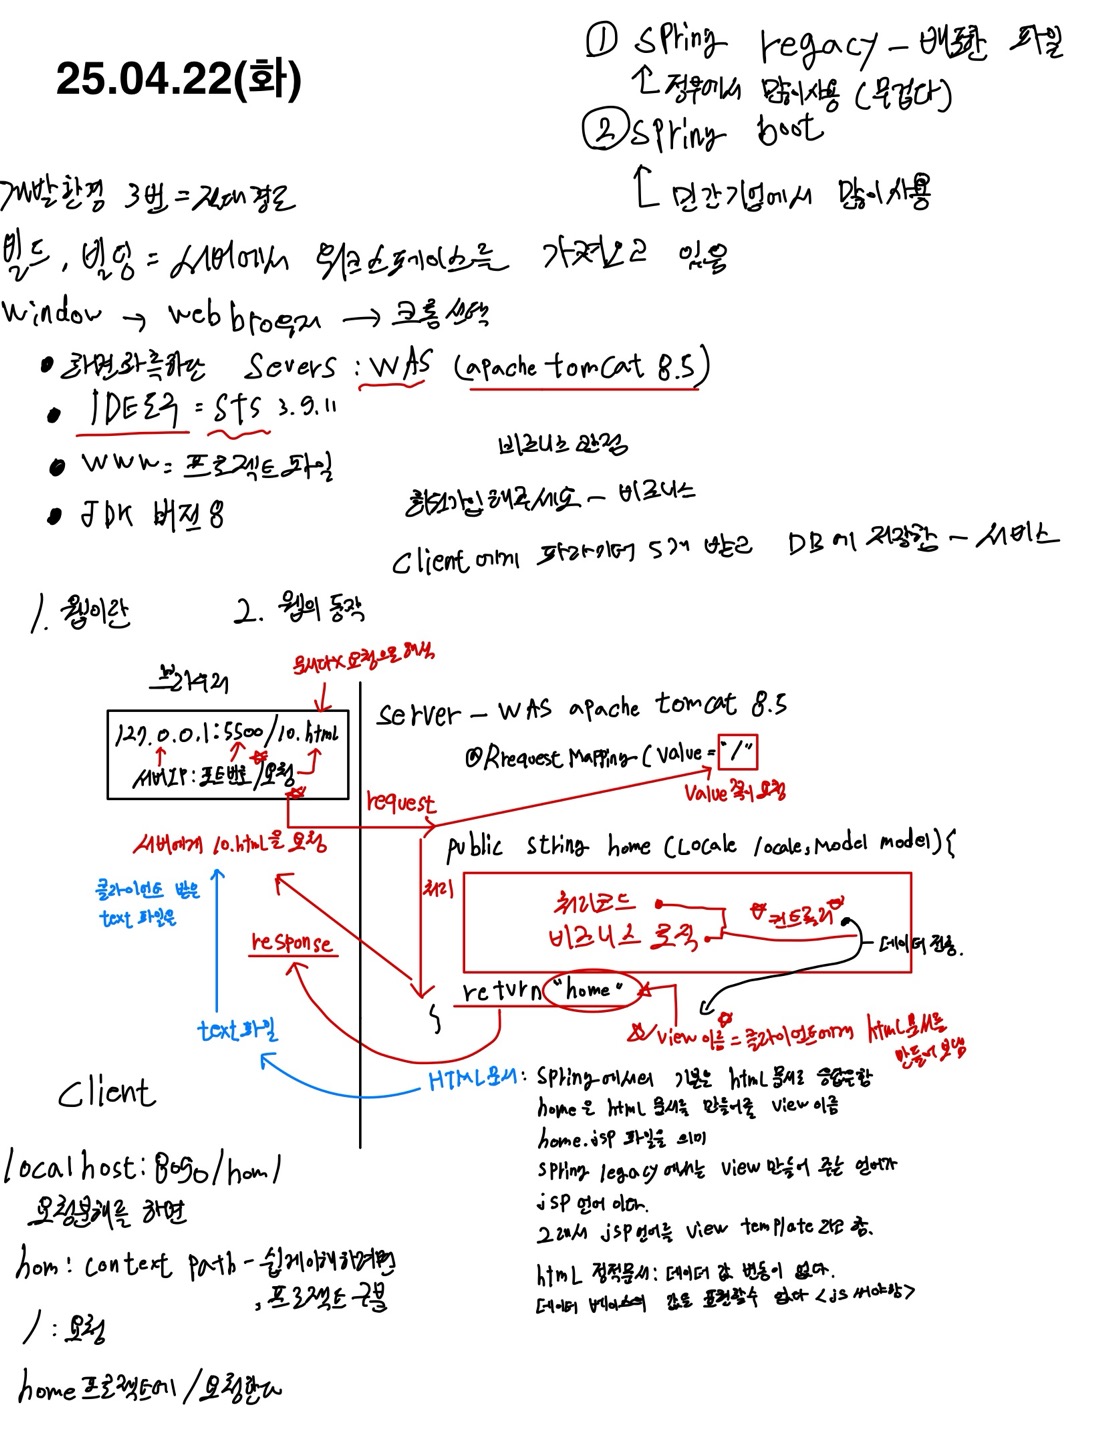 25.04.22(화)
① spring regacy - 배포한 파일
↑ 정부에서 많이사용 (무겁다)
② spring boot
↑ 민간기업에서 많이사용
개발환경 3번 = 절대경로
빌드, 빌딩 = 서버에서 워크스페이스를 가져오고 있음
window → web browser → 크롬선택
• 화면좌측하단 Severs : WAS (apache tomcat 8.5)
• IDE도구 = STS 3.9.11
• www = 프로젝트파일
• JDK 버전 8
비즈니스 관점
회원가입해주세요 - 비즈니스
Client에게 파라미터 5개 받고 DB에 저장함 - 서비스
1. 웹이란 2. 웹의 동작
문서다X 요청으로 해석
브라우저
127.0.0.1:5500/10.html
서버IP:포트번호/요청
server - WAS apache tomcat 8.5
@Rrequest Mapping (value = "/"
value 값이 요청
request
서버에게 10.html을 요청
public string home (Locale locale, Model model) {
클라이언트 받은
text 파일은
처리
처리코드
비즈니스 로직
컨트롤러
데이터 전송.
response
return "home"
}
view 이름 = 클라이언트에게 html문서를
만들어 보냄
text 파일
HTML문서 : spring에서의 기본은 html 문서로 응답은함
home은 html 문서를 만들어줄 view 이름
home.jsp 파일을 의미
spring legacy 에서는 view 만들어 주는 언어가
jsp 언어 이다.
그래서 jsp언어를 view template 라고 함.
html 정적문서 : 데이터 값 변동이 없다.
데이터 베이스의 값을 표현할수 없다 <js 써야함>
Client
localhost:8090/hom/
요청분해를 하면
hom : context path - 쉽게이해하려면
, 프로젝트 구분
/ : 요청
home 프로젝트에 / 요청한다